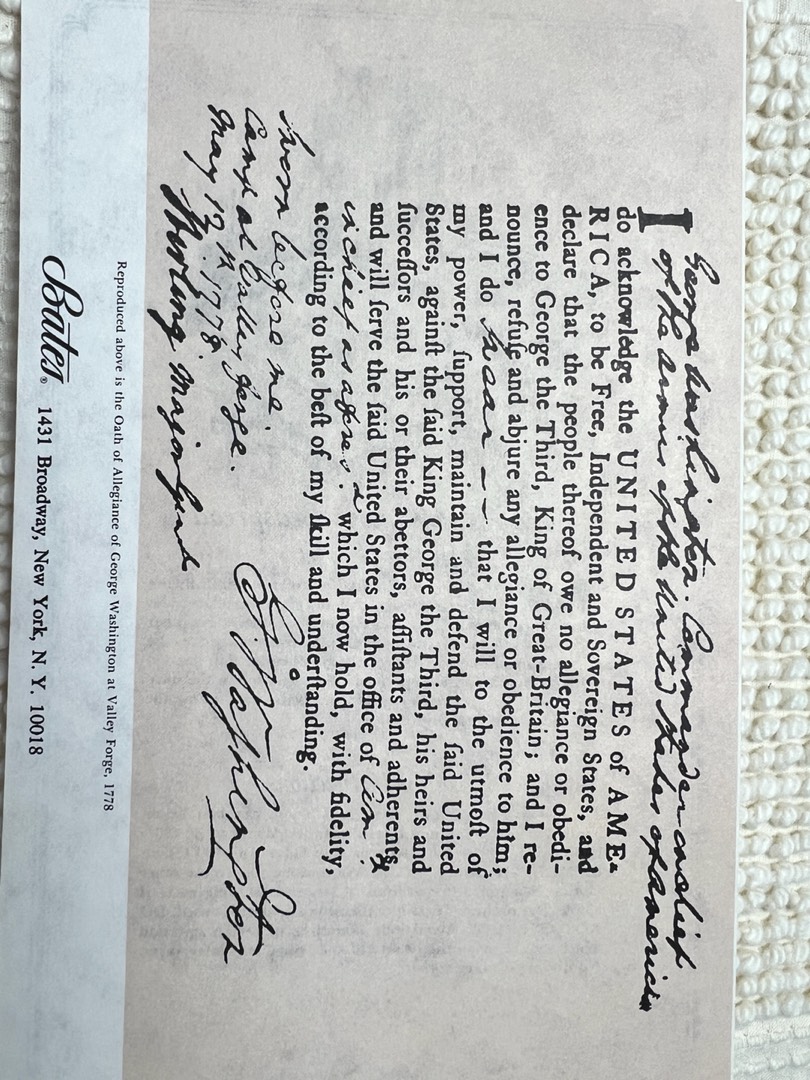 George Washington. Commander in chief
I of the armies of the United States of America
do acknowledge the UNITED STATES of AME-
RICA, to be Free, Independent and Sovereign States, and
declare that the people thereof owe no allegiance or obedi-
ence to George the Third, King of Great-Britain; and I re-
nounce, refuſe and abjure any allegiance or obedience to him;
and I do swear -- that I will to the utmoſt of
my power, ſupport, maintain and defend the ſaid United
States, againſt the ſaid King George the Third, his heirs and
ſucceſſors and his or their abettors, aſſiſtants and adherents,
and will ſerve the ſaid United States in the office of Com.r
in chief as afores.d which I now hold, with fidelity,
according to the beſt of my ſkill and underſtanding.
Sworn before me.
Camp at Valley forge.
May 12th. 1778.
Stirling Major Genl
G.o Washington
Reproduced above is the Oath of Allegiance of George Washington at Valley Forge, 1778
Bates® 1431 Broadway, New York, N. Y. 10018